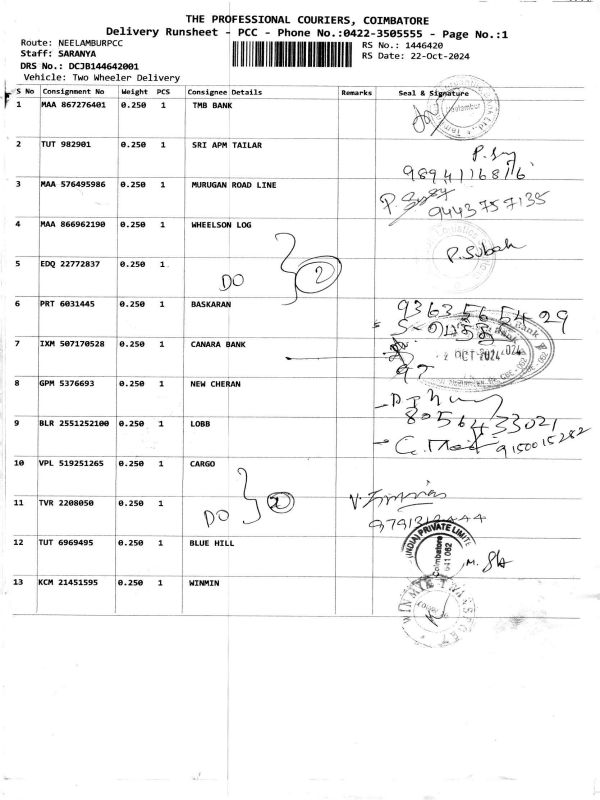 THE PROFESSIONAL COURIERS, COIMBATORE
Delivery Runsheet - PCC - Phone No.:0422-3505555 - Page No.:1
Route: NEELAMBURPCC
RS No.: 1446420
Staff: SARANYA
RS Date: 22-Oct-2024
DRS No.: DCJB144642001
Vehicle: Two Wheeler Delivery
S No Consignment No Weight PCS Consignee Details Remarks Seal & Signature
1 MAA 867276401 0.250 1 TMB BANK
2 TUT 982901 0.250 1 SRI APM TAILAR
9894116816
3 MAA 576495986 0.250 1 MURUGAN ROAD LINE
9443757135
4 MAA 866962190 0.250 1 WHEELSON LOG
P. Subash
5 EDQ 22772837 0.250 1
DO 2
6 PRT 6031445 0.250 1 BASKARAN
9363565429
7 IXM 507170528 0.250 1 CANARA BANK
2 OCT 2024
8 GPM 5376693 0.250 1 NEW CHERAN
8056433021
9 BLR 2551252100 0.250 1 LOBB
9150015282
10 VPL 519251265 0.250 1 CARGO
11 TVR 2208050 0.250 1
DO 2
12 TUT 6969495 0.250 1 BLUE HILL
(INDIA) PRIVATE LIMITE
Coimbatore
641 062
13 KCM 21451595 0.250 1 WINMIN